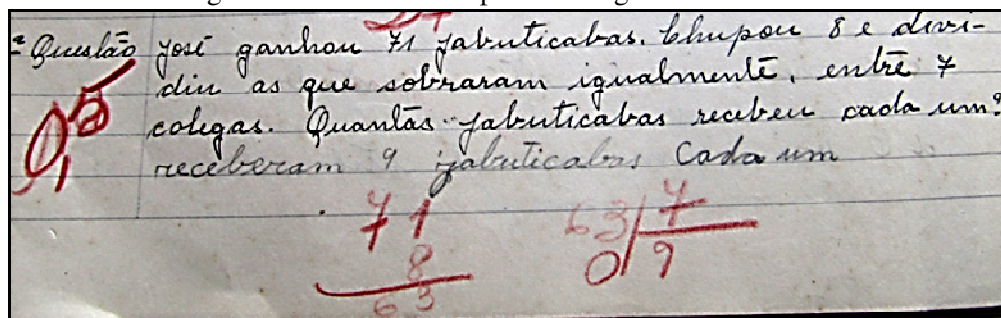 ª Questão José ganhou 71 jabuticabas. Chupou 8 e divi-
diu as que sobraram igualmente, entre 7
colegas. Quantas jabuticabas recebeu cada um?
receberam 9 jabuticabas Cada um
0,5
71 63 7
8 0 9
63